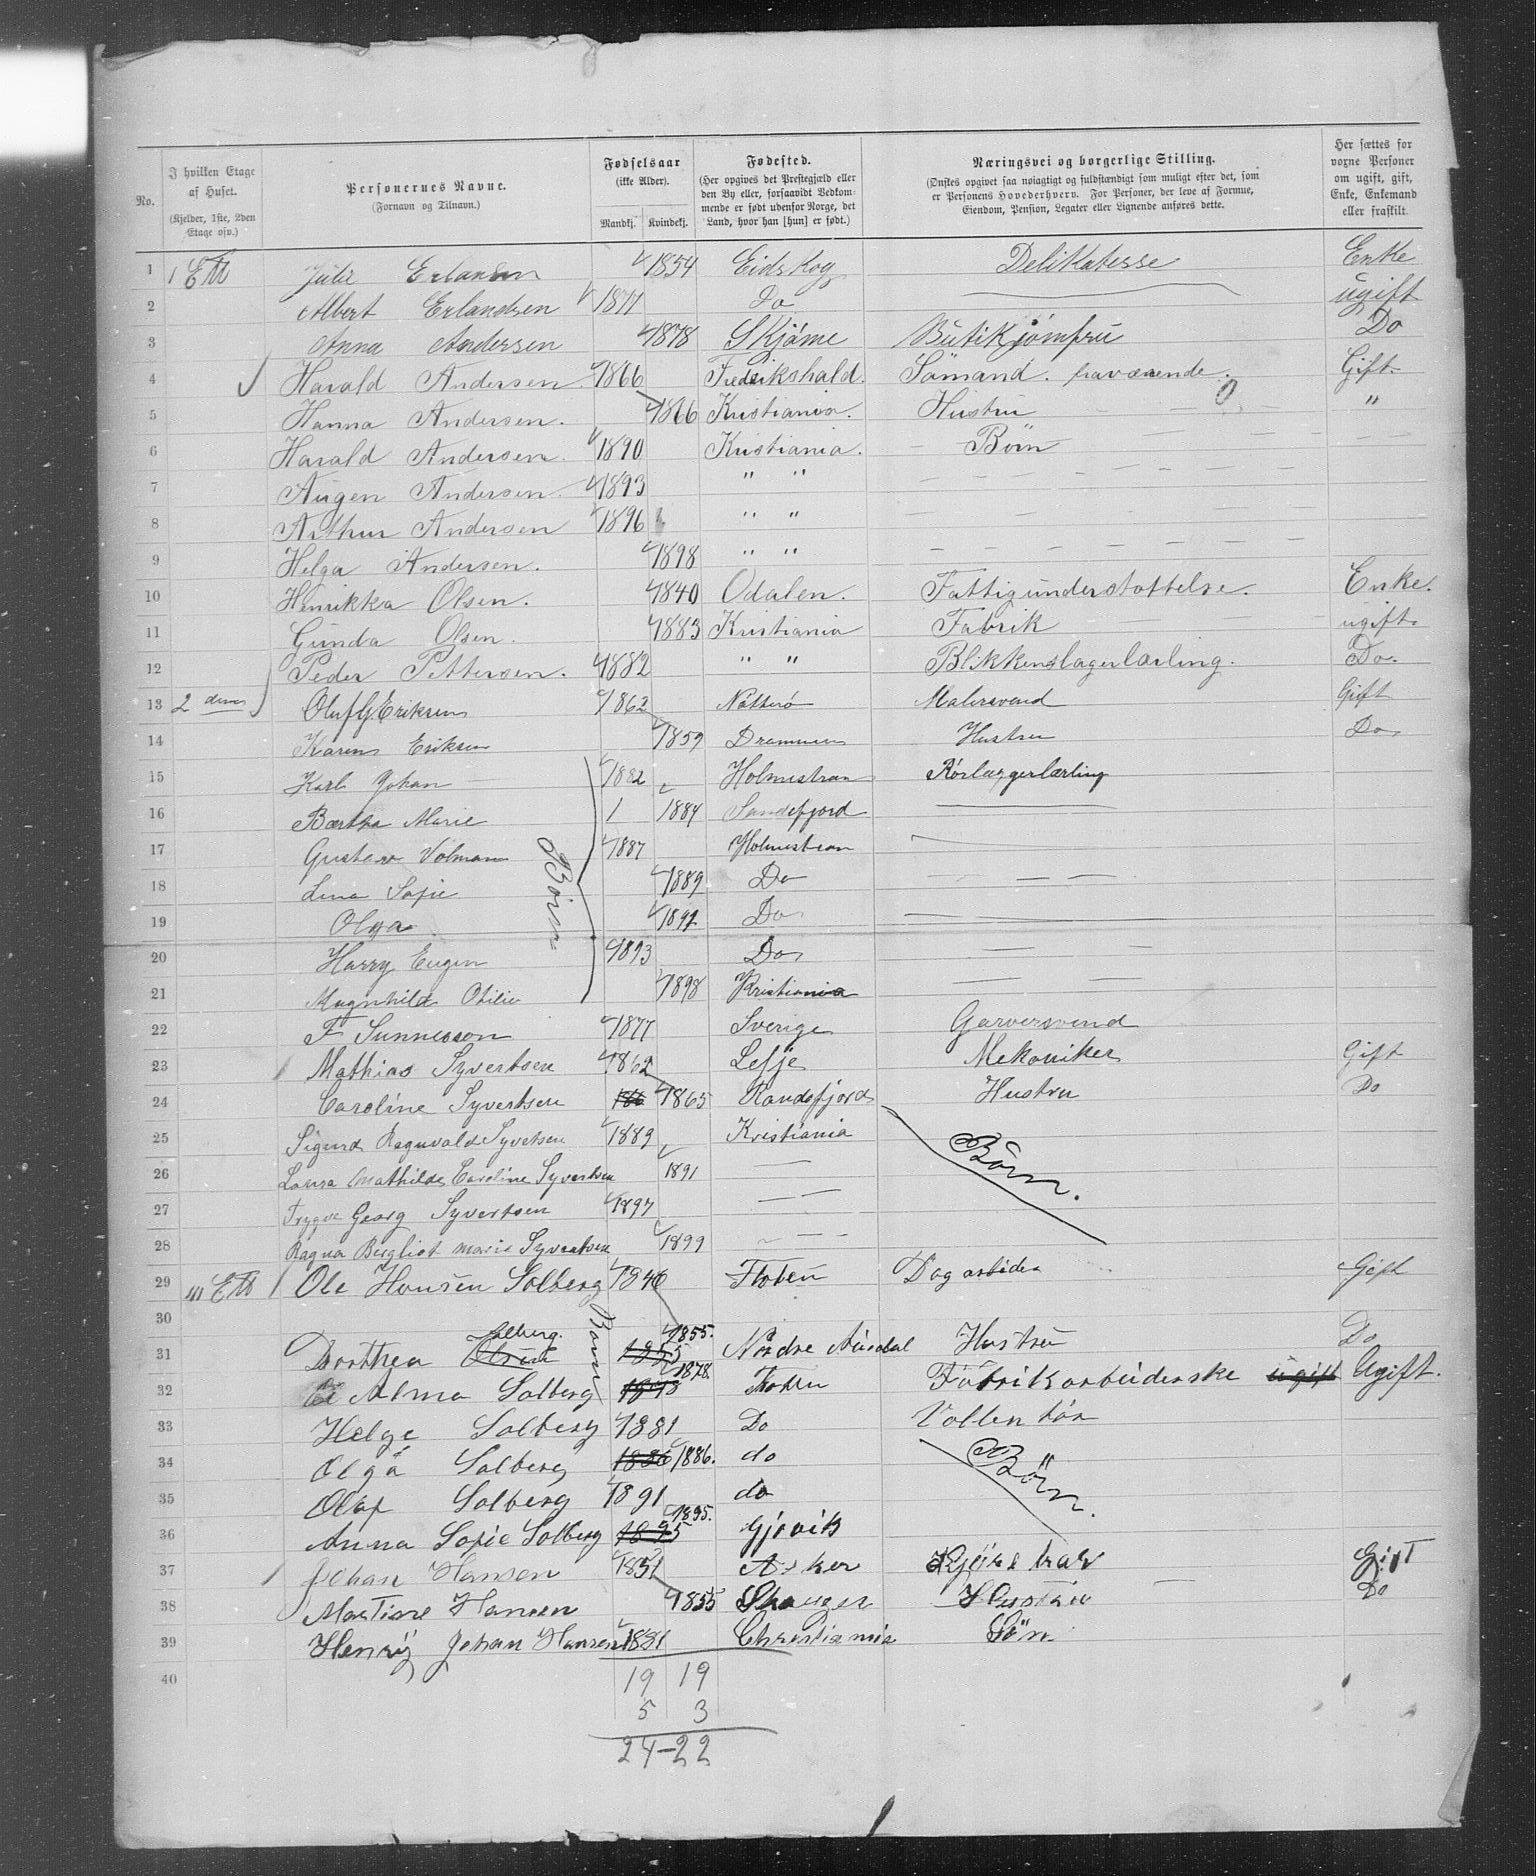 No.
I hvilken Etage af Huset. (Kjelder, 1ste, 2den Etage osv.)
Personernes Navne. (Fornavn og Tilnavn.)
Fødselsaar (ikke Alder). Mandkj. Kvindekj.
Fødested. (Her opgives det Prestegjæld eller den By eller, forsaavidt Vedkommende er født udenfor Norge, det Land, hvor han [hun] er født.)
Næringsvei og borgerlige Stilling. (Ønskes opgivet saa nøiagtigt og fuldstændigt som muligt efter det, som er Personens Hovederhverv. For Personer, der leve af Formue, Eiendom, Pension, Legater eller Lignende anføres dette.
Her sættes for voxne Personer om ugift, gift, Enke, Enkemand eller fraskilt.
1 1 Ett Julie Erlansen 1854 Eidskog Delikatesse Enke
2 Albert Erlandsen 1877 Do ugift
3 Anna Andersen 1878 Skjøme Butikjomfru Do
4 Harald Andersen. 1866 Fredrikshald. Sømand. fraværende. Gift.
5 Hanna Andersen. 1866 Kristiania. Hustru "
6 Harald Andersen. 1890 Kristiania. Børn
7 Augen Andersen. 1893 " "
8 Arthur Andersen 1896 " "
9 Helga Andersen. 1898 " "
10 Henrikka Olsen. 1840 Odalen. Fattigunderstøttelse. Enke.
11 Gunda Olsen. 1883 Kristiania Fabrik ugift.
12 Peder Pettersen. 1882 " " Blikkenslagerlærling. Do.
13 2 den Oluf G. Eriksen 1862 Nøtterø Malersvend Gift
14 Karen Eriksen 1859 Drammen Hustru Do
15 Karl Johan 1882 Holmestran Rørlæggerlærling
16 Bertha Marie 1 1884 Sandefjord
17 Gustav Volman 1887 Holmestran
Børn
18 Lena Sofie 1889 Do
19 Olga 1891 Do
20 Harry Eugen 1893 Do
21 Magnhild Otilie 1898 Kristiania
22 F Sunnesson 1877 Sverige Garversvend
23 Mathias Syvertsen 1862 Lesje Mekaniker Gift
24 Caroline Syvertsen 186 1865 Randsfjord Hustru Do
25 Sigurd Ragnvald Syvertsen 1889 Kristiania
26 Laura Mathilde Caroline Syvertsen 1891 Børn.
27 Trygve Georg Syvertsen 1897
28 Ragna Bergliot Marie Syvertsen 1899
29 III Ett Ole Hansen Solberg 1846 Toten Dagarbeider Gift
30
31 Dorthea Olsen Solberg. 1855 1855. Nordre Aurdal Hustru Do
32 Alma Solberg 1878 1878. Toten Fabrikarbeiderske ugift Ugift.
Børn
33 Helge Solberg 1881 Do Vollentør
34 Olga Solberg 1886 1886. do Børn.
35 Olaf Solberg 1891 do
36 Anna Sofie Solberg 1895 1895. Gjøvik
37 Johan Hansen 1851 Asker Kjørekar Gift
38 Martine Hansen 1855 Skauger Hustru Do
39 Henrij Johan Hansen 1881 Christiania Søn
40
19 19
5 3
24-22